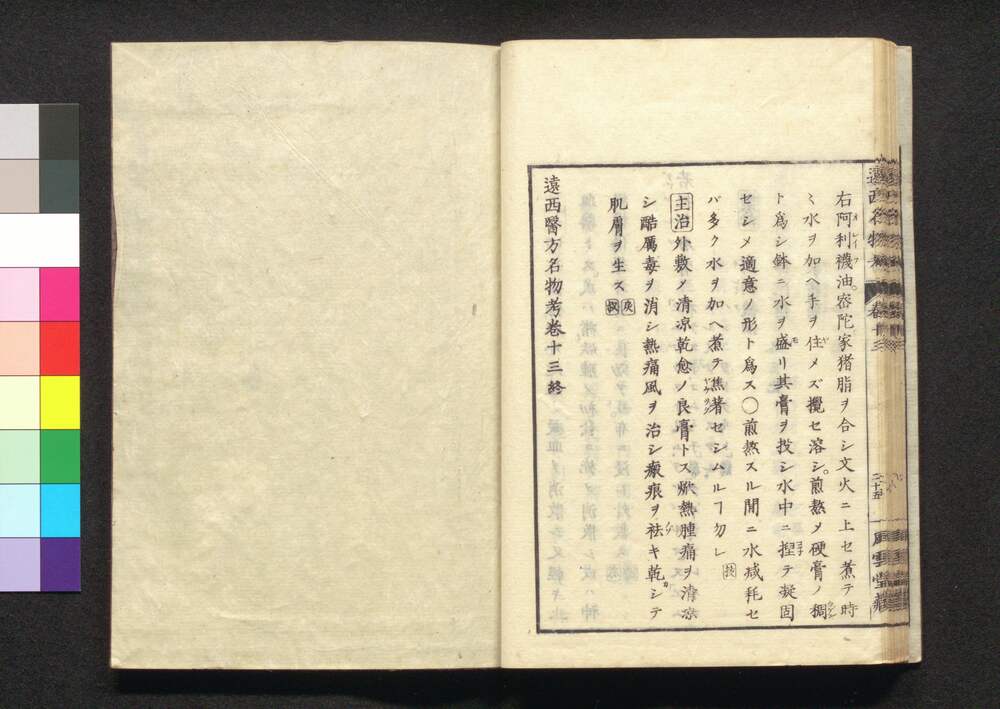 右阿利襪油密陀家猪脂ヲ合シ文火ニ上セ煮テ時
々水ヲ加ヘ手ヲ住メズ攪セ溶シ煎熬メ硬膏ノ稠
ト爲シ鉢ニ水ヲ盛リ其膏ヲ投シ水中ニ揑テ凝固
セシメ適意ノ形ト爲ス〇煎熬スル間ニ水减耗セ
バ多ク水ヲ加ヘ煮テ焦著セシムルヿ勿レ 扶
主治 外敷メ清凉乾愈ノ良膏トス焮熱腫痛ヲ清凉
シ酷厲毒ヲ消シ熱痛風ヲ治シ瘢痕ヲ祛キ乾シテ
肌膚ヲ生ス
遠西醫方名物考卷十三終
遠西名物考 卷十三
三十五
風雲堂藏